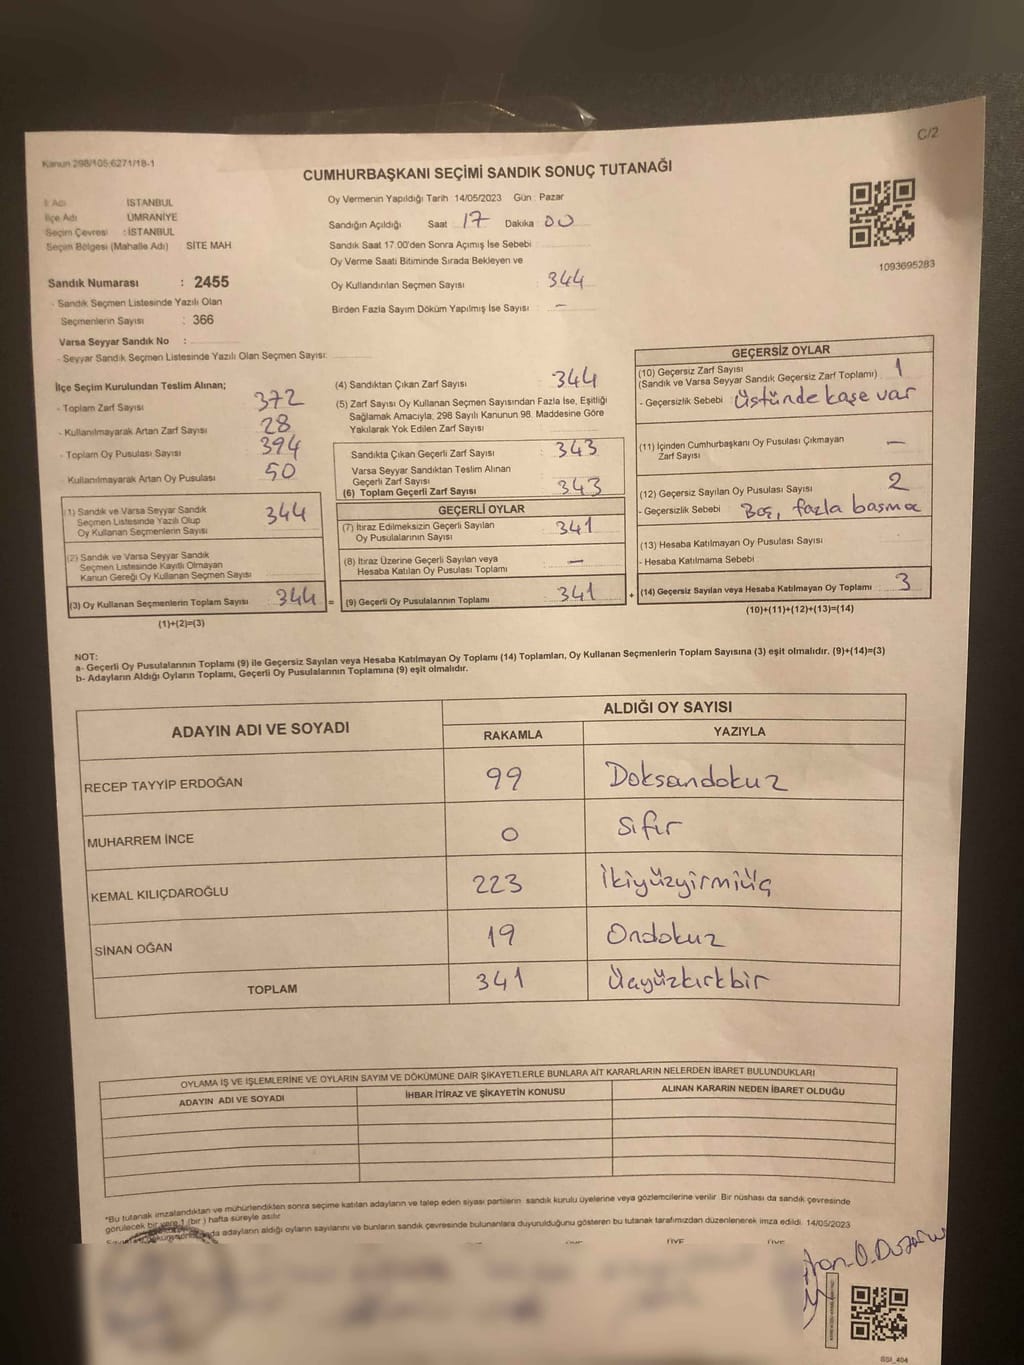 C/2
Kanun 298/105;6271/18-1
CUMHURBAŞKANI SEÇİMİ SANDIK SONUÇ TUTANAĞI
İl Adı İSTANBUL
İlçe Adı ÜMRANİYE
Seçim Çevresi : İSTANBUL
Seçim Bölgesi (Mahalle Adı) SİTE MAH
Sandık Numarası : 2455
- Sandık Seçmen Listesinde Yazılı Olan
Seçmenlerin Sayısı : 366
Varsa Seyyar Sandık No :
- Seyyar Sandık Seçmen Listesinde Yazılı Olan Seçmen Sayısı:
Oy Vermenin Yapıldığı Tarih :14/05/2023 Gün : Pazar
Sandığın Açıldığı Saat 17 Dakika 00
Sandık Saat 17.00'den Sonra Açımış İse Sebebi
Oy Verme Saati Bitiminde Sırada Bekleyen ve
Oy Kullandırılan Seçmen Sayısı : 344
Birden Fazla Sayım Döküm Yapılmış İse Sayısı : –
1093695283
İlçe Seçim Kurulundan Teslim Alınan;
- Toplam Zarf Sayısı 372
- Kullanılmayarak Artan Zarf Sayısı 28
- Toplam Oy Pusulası Sayısı 394
- Kullanılmayarak Artan Oy Pusulası 50
(1) Sandık ve Varsa Seyyar Sandık
Seçmen Listesinde Yazılı Olup
Oy Kullanan Seçmenlerin Sayısı 344
(2) Sandık ve Varsa Seyyar Sandık
Seçmen Listesinde Kayıtlı Olmayan
Kanun Gereği Oy Kullanan Seçmen Sayısı
(3) Oy Kullanan Seçmenlerin Toplam Sayısı 344 =
(1)+(2)=(3)
(4) Sandıktan Çıkan Zarf Sayısı : 344
(5) Zarf Sayısı Oy Kullanan Seçmen Sayısından Fazla İse, Eşitliği
Sağlamak Amacıyla; 298 Sayılı Kanunun 98. Maddesine Göre
Yakılarak Yok Edilen Zarf Sayısı :
Sandıkta Çıkan Geçerli Zarf Sayısı : 343
Varsa Seyyar Sandıktan Teslim Alınan
Geçerli Zarf Sayısı :
(6) Toplam Geçerli Zarf Sayısı : 343
GEÇERLİ OYLAR
(7) İtiraz Edilmeksizin Geçerli Sayılan
Oy Pusulalarının Sayısı : 341
(8) İtiraz Üzerine Geçerli Sayılan veya
Hesaba Katılan Oy Pusulası Toplamı : –
(9) Geçerli Oy Pusulalarının Toplamı : 341 +
GEÇERSİZ OYLAR
(10) Geçersiz Zarf Sayısı
(Sandık ve Varsa Seyyar Sandık Geçersiz Zarf Toplamı) : 1
- Geçersizlik Sebebi : Üstünde kaşe var
(11) İçinden Cumhurbaşkanı Oy Pusulası Çıkmayan
Zarf Sayısı : –
(12) Geçersiz Sayılan Oy Pusulası Sayısı : 2
- Geçersizlik Sebebi : Boş, fazla basma
(13) Hesaba Katılmayan Oy Pusulası Sayısı :
- Hesaba Katılmama Sebebi :
(14) Geçersiz Sayılan veya Hesaba Katılmayan Oy Toplamı : 3
(10)+(11)+(12)+(13)=(14)
NOT:
a- Geçerli Oy Pusulalarının Toplamı (9) ile Geçersiz Sayılan veya Hesaba Katılmayan Oy Toplamı (14) Toplamları, Oy Kullanan Seçmenlerin Toplam Sayısına (3) eşit olmalıdır. (9)+(14)=(3)
b- Adayların Aldığı Oyların Toplamı, Geçerli Oy Pusulalarının Toplamına (9) eşit olmalıdır.
ADAYIN ADI VE SOYADI ALDIĞI OY SAYISI
RAKAMLA YAZIYLA
RECEP TAYYİP ERDOĞAN 99 Doksandokuz
MUHARREM İNCE 0 Sıfır
KEMAL KILIÇDAROĞLU 223 İkiyüzyirmiüç
SİNAN OĞAN 19 Ondokuz
TOPLAM 341 Üçyüzkırkbir
OYLAMA İŞ VE İŞLEMLERİNE VE OYLARIN SAYIM VE DÖKÜMÜNE DAİR ŞİKAYETLERLE BUNLARA AİT KARARLARIN NELERDEN İBARET BULUNDUKLARI
ADAYIN ADI VE SOYADI İHBAR İTİRAZ VE ŞİKAYETİN KONUSU ALINAN KARARIN NEDEN İBARET OLDUĞU
*Bu tutanak imzalandıktan ve mühürlendikten sonra seçime katılan adayların ve talep eden siyasi partilerin sandık kurulu üyelerine veya gözlemcilerine verilir. Bir nüshası da sandık çevresinde
görülecek bir yere 1 (bir ) hafta süreyle asılır
adayların aldığı oyların sayılarını ve bunların sandık çevresinde bulunanlara duyurulduğunu gösteren bu tutanak tarafımızdan düzenlenerek imza edildi. 14/05/2023
ÜYE ÜYE ÜYE